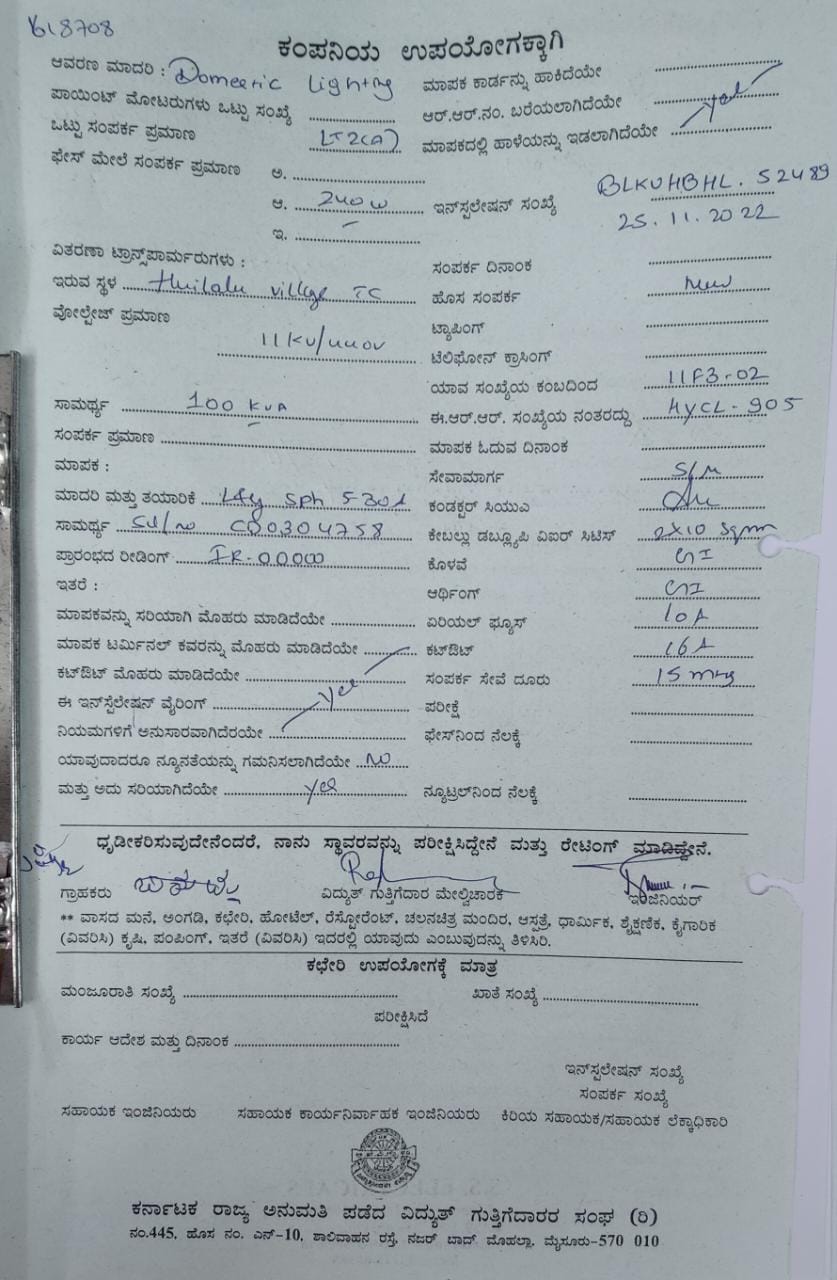 618708
ಕಂಪನಿಯ ಉಪಯೋಗಕ್ಕಾಗಿ
ಆವರಣ ಮಾದರಿ : Domestic Lighting
ಪಾಯಿಂಟ್ ಮೋಟರುಗಳು ಒಟ್ಟು ಸಂಖ್ಯೆ
ಒಟ್ಟು ಸಂಪರ್ಕ ಪ್ರಮಾಣ LT2(A)
ಫೇಸ್ ಮೇಲೆ ಸಂಪರ್ಕ ಪ್ರಮಾಣ ಅ.
ಆ. 240 W
ಇ.
ವಿತರಣಾ ಟ್ರಾನ್ಸ್‌ಪಾರ್ಮರುಗಳು :
ಇರುವ ಸ್ಥಳ Huilalu village TC
ವೋಲ್ಟೇಜ್ ಪ್ರಮಾಣ
11KV/440V
ಸಾಮರ್ಥ್ಯ 100 KVA
ಸಂಪರ್ಕ ಪ್ರಮಾಣ
ಮಾಪಕ :
ಮಾದರಿ ಮತ್ತು ತಯಾರಿಕೆ L&G Sph 5-30A
ಸಾಮರ್ಥ್ಯ Sl/no CD0304758
ಪ್ರಾರಂಭದ ರೀಡಿಂಗ್ IR-00000
ಇತರೆ :
ಮಾಪಕವನ್ನು ಸರಿಯಾಗಿ ಮೊಹರು ಮಾಡಿದೆಯೇ
ಮಾಪಕ ಟರ್ಮಿನಲ್ ಕವರನ್ನು ಮೊಹರು ಮಾಡಿದೆಯೇ
ಕಟ್‌ಔಟ್ ಮೊಹರು ಮಾಡಿದೆಯೇ
ಈ ಇನ್‌ಸ್ಟಲೇಷನ್ ವೈರಿಂಗ್ yes
ನಿಯಮಗಳಿಗೆ ಅನುಸಾರವಾಗಿದೆರಯೇ
ಯಾವುದಾದರೂ ನ್ಯೂನತೆಯನ್ನು ಗಮನಿಸಲಾಗಿದೆಯೇ NO
ಮತ್ತು ಅದು ಸರಿಯಾಗಿದೆಯೇ yes
ಮಾಪಕ ಕಾರ್ಡನ್ನು ಹಾಕಿದೆಯೇ
ಆರ್.ಆರ್.ನಂ. ಬರೆಯಲಾಗಿದೆಯೇ yes
ಮಾಪಕದಲ್ಲಿ ಹಾಳೆಯನ್ನು ಇಡಲಾಗಿದೆಯೇ
ಇನ್‌ಸ್ಟಲೇಷನ್ ಸಂಖ್ಯೆ BLKUHBHL. 52489
25.11.2022
ಸಂಪರ್ಕ ದಿನಾಂಕ
ಹೊಸ ಸಂಪರ್ಕ New
ಟ್ಯಾಪಿಂಗ್
ಟೆಲಿಫೋನ್ ಕ್ರಾಸಿಂಗ್
ಯಾವ ಸಂಖ್ಯೆಯ ಕಂಬದಿಂದ 11F3-02
ಈ.ಆರ್.ಆರ್. ಸಂಖ್ಯೆಯ ನಂತರದ್ದು HYCL-905
ಮಾಪಕ ಓದುವ ದಿನಾಂಕ
ಸೇವಾಮಾರ್ಗ S/M
ಕಂಡಕ್ಟರ್ ಸಿಯುಎ
ಕೇಬಲ್ಲು ಡಬ್ಲ್ಯೂಪಿ ವಿಐರ್ ಸಿಟಿಸ್ 2X10 Sqmm
ಕೊಳವೆ GI
ಆರ್ಥಿಂಗ್ GI
ಏರಿಯಲ್ ಫ್ಯೂಸ್ 10A
ಕಟ್‌ಔಟ್ 16A
ಸಂಪರ್ಕ ಸೇವೆ ದೂರು 15 mtrs
ಪರೀಕ್ಷೆ
ಫೇಸ್‌ನಿಂದ ನೆಲಕ್ಕೆ
ನ್ಯೂಟ್ರಲ್‌ನಿಂದ ನೆಲಕ್ಕೆ
ಧೃಡೀಕರಿಸುವುದೇನೆಂದರೆ, ನಾನು ಸ್ಥಾವರವನ್ನು ಪರೀಕ್ಷಿಸಿದ್ದೇನೆ ಮತ್ತು ರೇಟಿಂಗ್ ಮಾಡಿದ್ದೇನೆ.
ಗ್ರಾಹಕರು ವಿದ್ಯುತ್ ಗುತ್ತಿಗೆದಾರ ಮೇಲ್ವಿಚಾರಕ ಇಂಜಿನಿಯರ್
** ವಾಸದ ಮನೆ, ಅಂಗಡಿ, ಕಛೇರಿ, ಹೋಟೆಲ್, ರೆಸ್ಟೋರೆಂಟ್, ಚಲನಚಿತ್ರ ಮಂದಿರ, ಆಸ್ಪತ್ರೆ, ಧಾರ್ಮಿಕ, ಶೈಕ್ಷಣಿಕ, ಕೈಗಾರಿಕ
(ವಿವರಿಸಿ) ಕೃಷಿ, ಪಂಪಿಂಗ್, ಇತರೆ (ವಿವರಿಸಿ) ಇದರಲ್ಲಿ ಯಾವುದು ಎಂಬುವುದನ್ನು ತಿಳಿಸಿರಿ.
ಕಛೇರಿ ಉಪಯೋಗಕ್ಕೆ ಮಾತ್ರ
ಮಂಜೂರಾತಿ ಸಂಖ್ಯೆ ಖಾತೆ ಸಂಖ್ಯೆ
ಪರೀಕ್ಷಿಸಿದೆ
ಕಾರ್ಯ ಆದೇಶ ಮತ್ತು ದಿನಾಂಕ
ಇನ್‌ಸ್ಟಲೇಷನ್ ಸಂಖ್ಯೆ
ಸಂಪರ್ಕ ಸಂಖ್ಯೆ
ಸಹಾಯಕ ಇಂಜಿನಿಯರು ಸಹಾಯಕ ಕಾರ್ಯನಿರ್ವಾಹಕ ಇಂಜಿನಿಯರು ಕಿರಿಯ ಸಹಾಯಕ/ಸಹಾಯಕ ಲೆಕ್ಕಾಧಿಕಾರಿ
ಕರ್ನಾಟಕ ರಾಜ್ಯ ಅನುಮತಿ ಪಡೆದ ವಿದ್ಯುತ್ ಗುತ್ತಿಗೆದಾರರ ಸಂಘ (ರಿ)
ನಂ.445, ಹೊಸ ನಂ. ಎನ್-10, ಶಾಲಿವಾಹನ ರಸ್ತೆ, ನಜರ್ ಬಾದ್ ಮೊಹಲ್ಲಾ, ಮೈಸೂರು-570 010